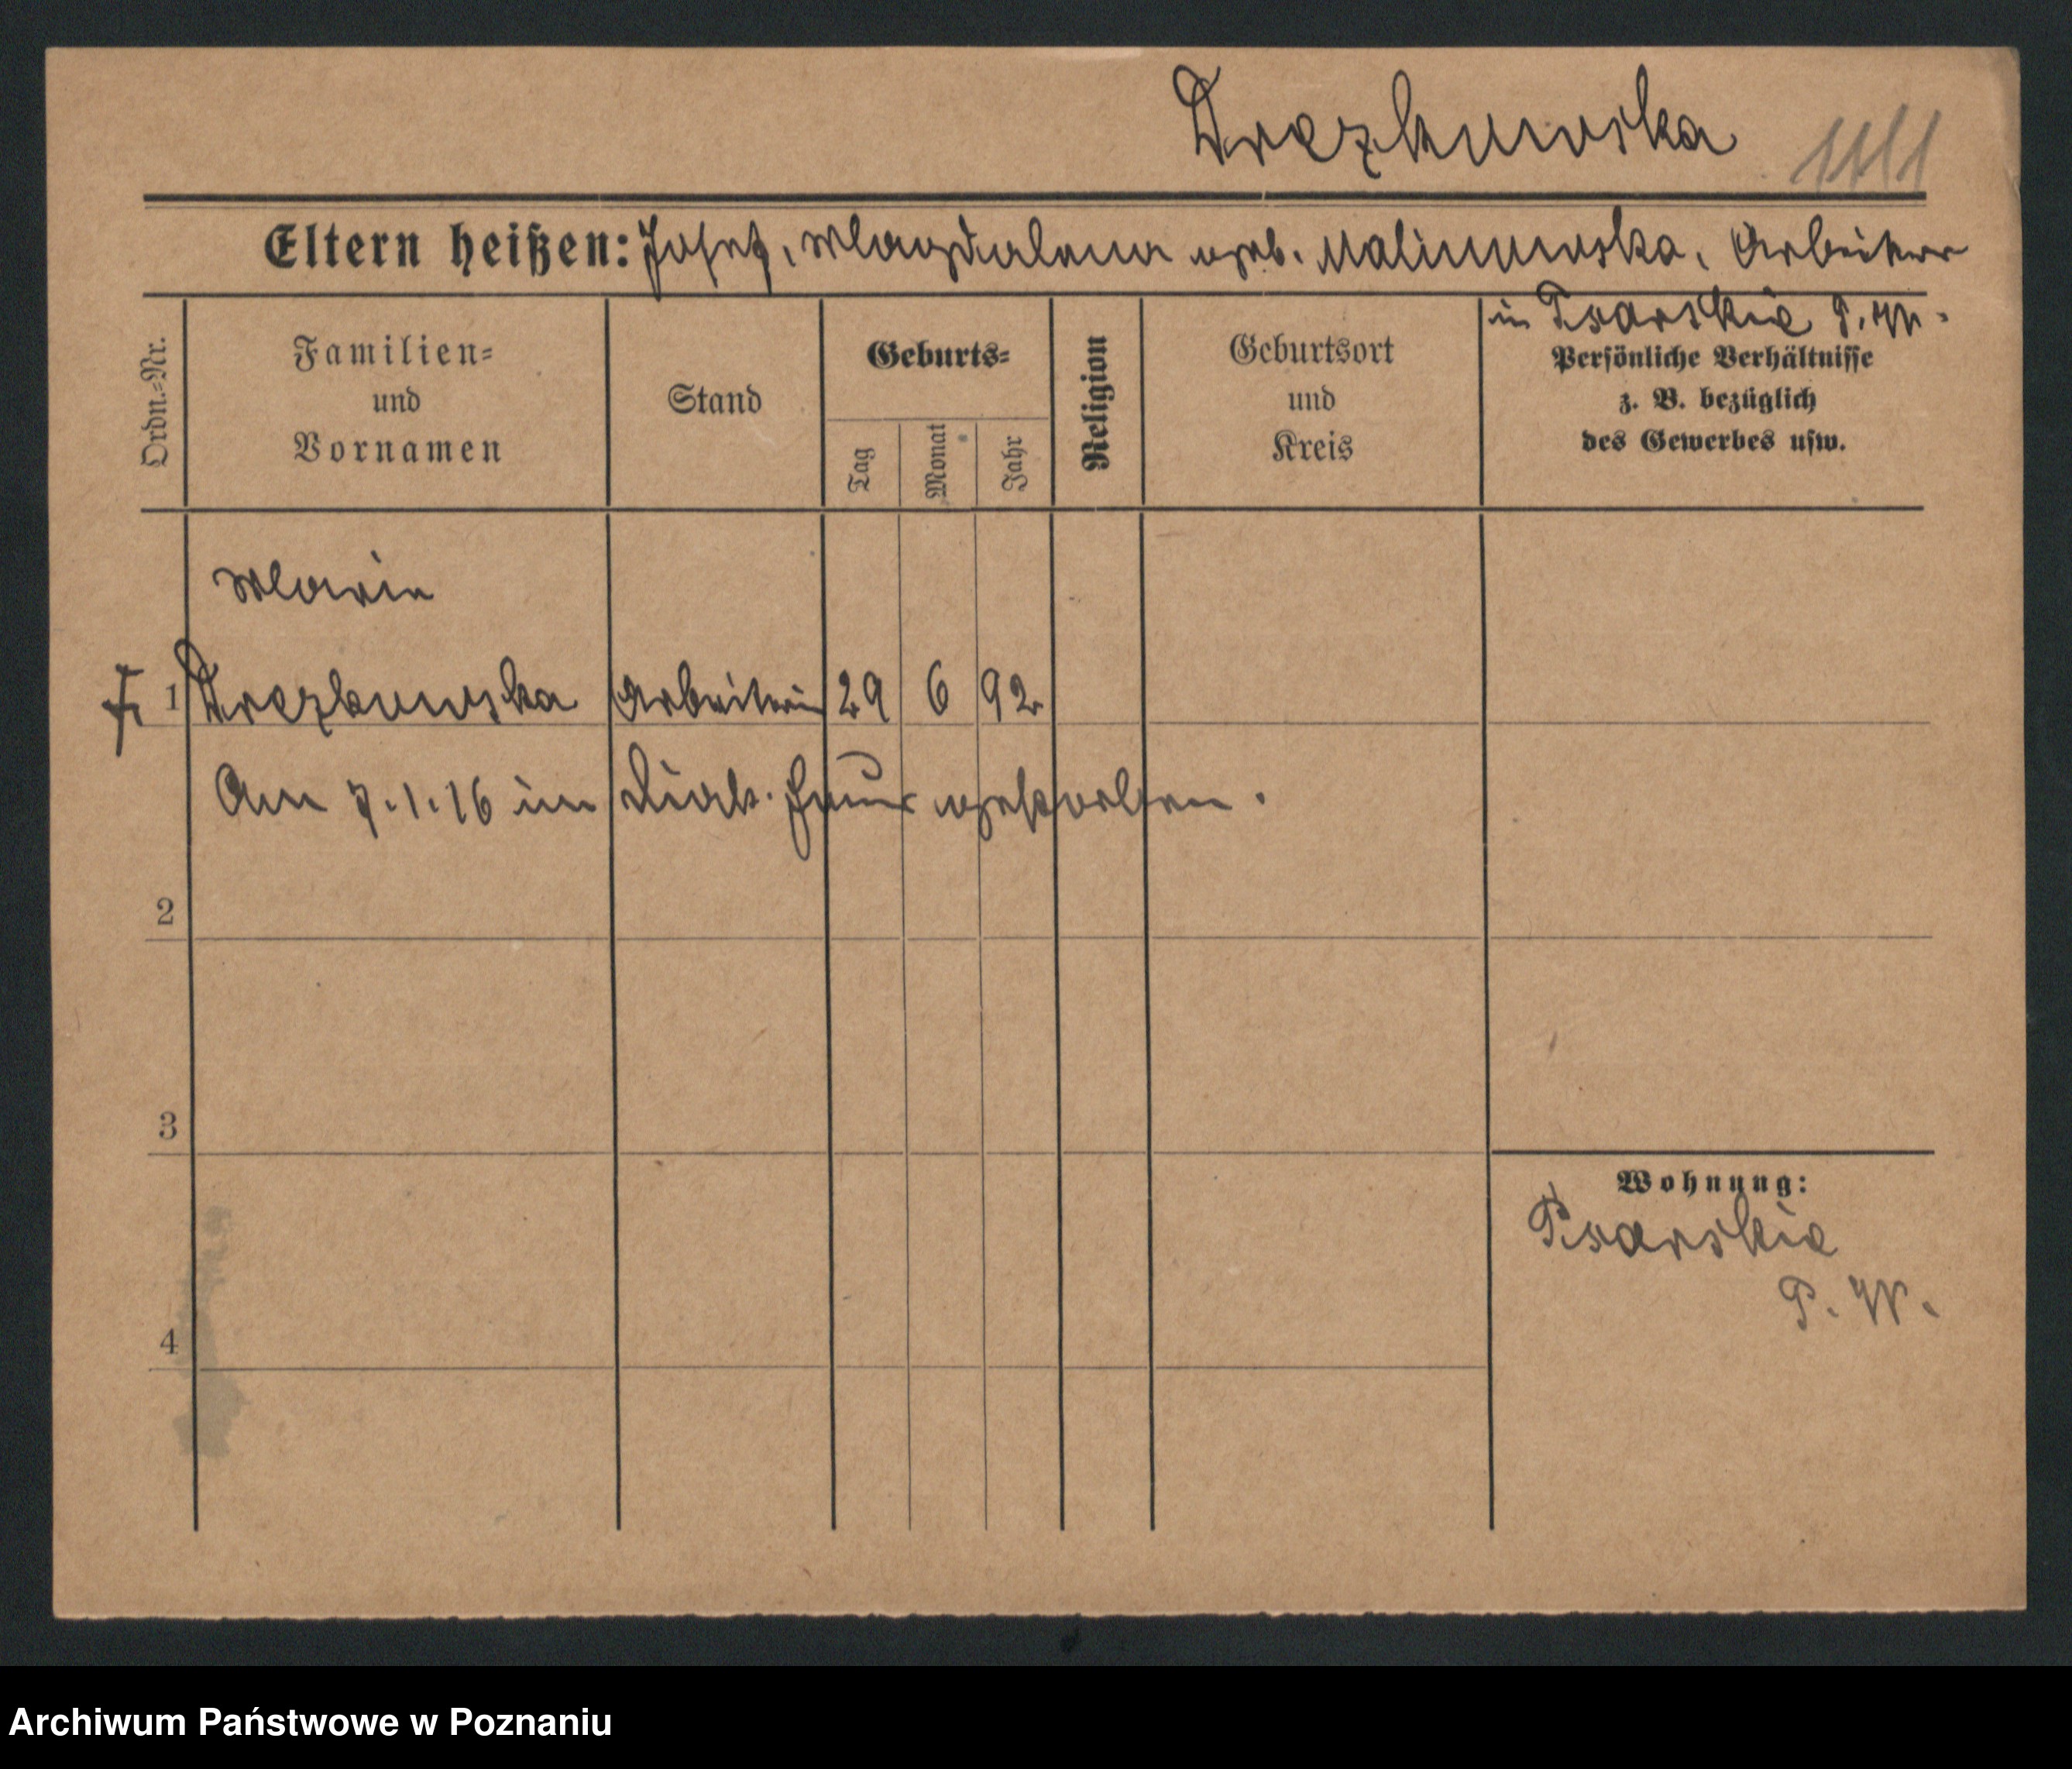 Drozkowska
Eltern heißen: Josef, Magdalena geb. Malinowska, Arbeiter
in Psarskie P. W.
Ordn.-Nr.
Familien-
und
Vornamen
Stand
Geburts-
Tag
Monat
Jahr
Religion
Geburtsort
und
Kreis
Persönliche Verhältnisse
z. B. bezüglich
des Gewerbes usw.
Maria
1 Drozkowska Arbeiterin 29 6 92
Am 7.1.16 im Diak. Haus gestorben.
2
3
Wohnung:
Psarskie
P. W.
4
Archiwum Państwowe w Poznaniu